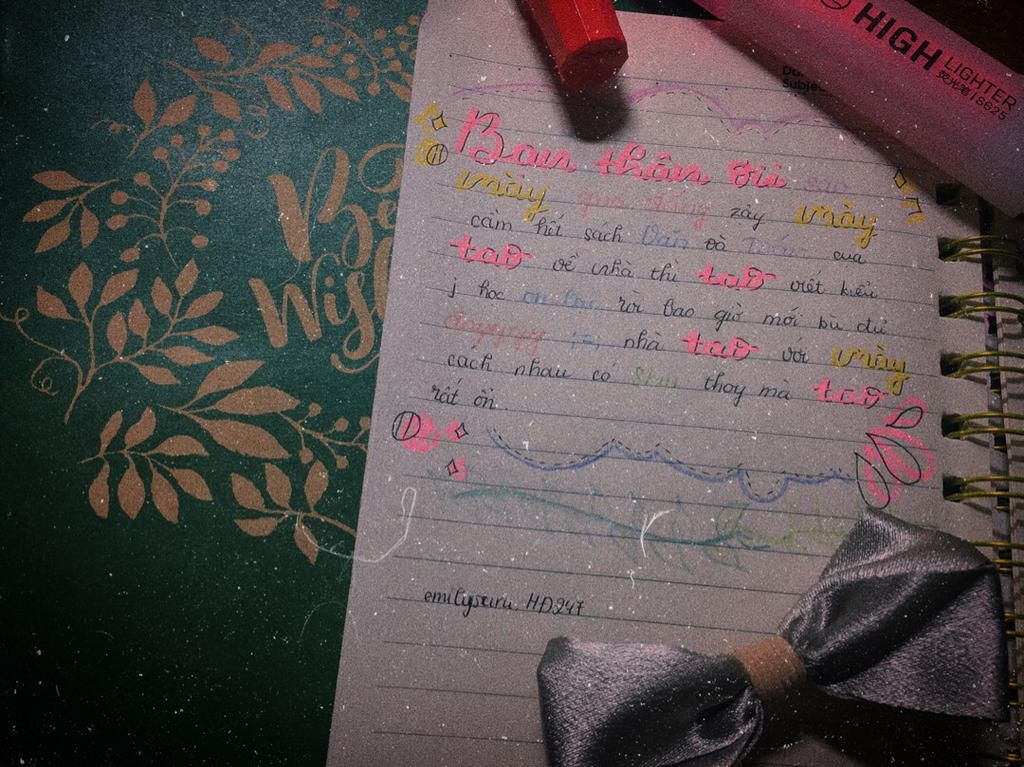 HIGH
LIGHTER
18625
Subjec
Be
Wis
Bạn thân gì sao
mày quá đáng zậy mày
cầm hết sách Văn và Toán của
tao về nhà thì tao viết kiểu
j học ôn bài rồi bao giờ mới bù đủ
đayyyyy nhà tao với mày
cách nhau có 5km thoy mà tao
rất ổn..
emilysaru. HD247